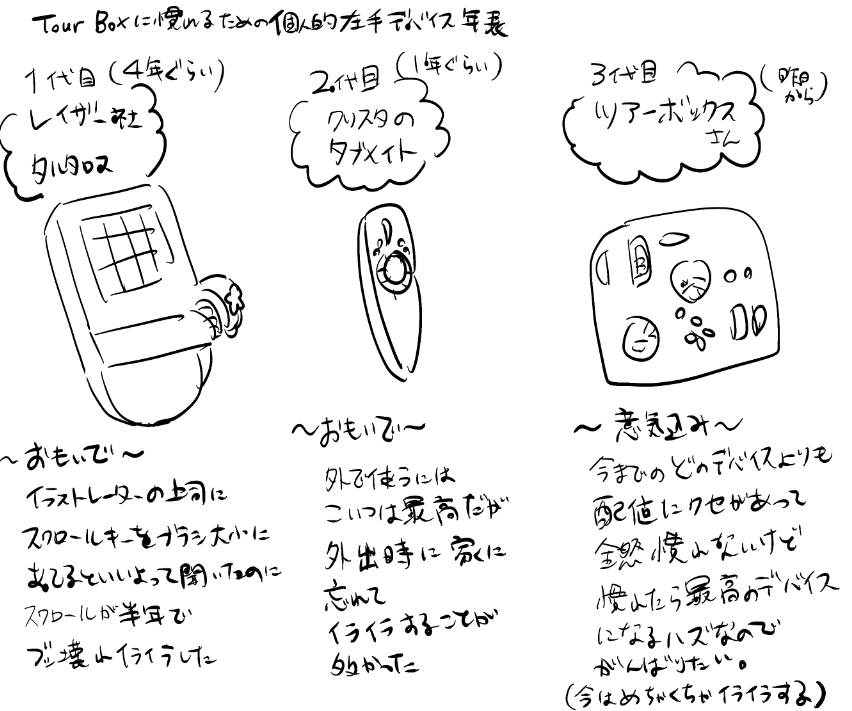 Tour Boxに慣れるための個人的左手デバイス年表
1代目(4年ぐらい)
レイザー社
タルタロス
〜おもいで〜
イラストレーターの上司に
スクロールキーをブラシ大小に
あてるといいよって聞いたのに
スクロールが半年で
ブッ壊れイライラした
2代目(1年ぐらい)
クリスタの
タブメイト
〜おもいで〜
外で使うには
こいつは最高だが
外出時に家に
忘れて
イライラすることが
多かった
3代目(昨日から)
ツアーボックス
さん
〜意気込み〜
今までのどのデバイスよりも
配値にクセがあって
全然慣れないけど
慣れたら最高のデバイス
になるハズなので
がんばりたい。
(今はめちゃくちゃイライラする)